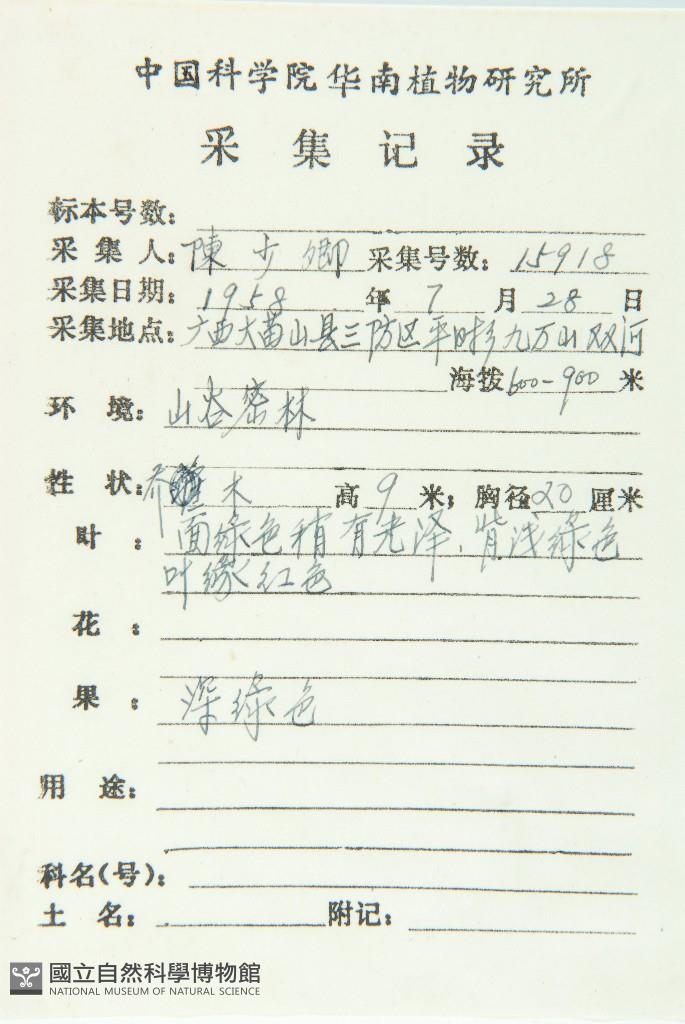 中国科学院华南植物研究所
采集记录
标本号数:
采集人: 陳少卿 采集号数: 15918
采集日期: 1958 年 7 月 28 日
采集地点: 广西大苗山县三防区平时乡九万山双河
海拨 600-900 米
环境: 山谷密林
性状: 乔木 高 9 米; 胸径 20 厘米
叶: 面绿色稍有光泽、背浅绿色
叶缘红色
花:
果: 深绿色
用途:
科名(号):
土名: 附记:
國立自然科學博物館
NATIONAL MUSEUM OF NATURAL SCIENCE